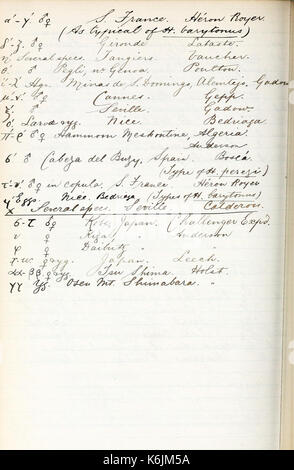 α'-γ'. ♂♀ S. France. Héron Royer
(As typical of H. barytonus)
δ'-ζ'. ♂♀ Gironde Lataste.
η. Several specs. Tangiers. Vaucher.
θ. ♂ Pegli, nr Genoa. Poulton.
Hgr. Minas de S. Domingo, Alemtejo, Gadow
μ-ν. ♂♀ Cannes. Gepp.
♂ Seville Gadow
ο. Larvæ & yg. Nice. Bedriaga
π-ρ ♂♀ Hammam Meskoutine, Algeria.
Anderson
σ. ♂ Cabeza del Buey, Spain. Boscá.
(Type of H. perezi)
τ-υ. ♂♀ in copula, S. France. Héron Royer
φ. Eggs. Nice. Bedriaga. (Types of H. barytonus)
χ Several specs. Seville Calderon.
σ-τ ♂♀ Kobe, Japan. Challenger Expd.
υ ♀ Anderson
φ ♀ Daibutz "
χ-ω. ♀ & yg. Japan. Leech.
αα-ββ. ♀ & yg. Tsu Shima. Holst.
γγ Yg. Osen Mt. Shimabara. "
alamy
K6JM5A